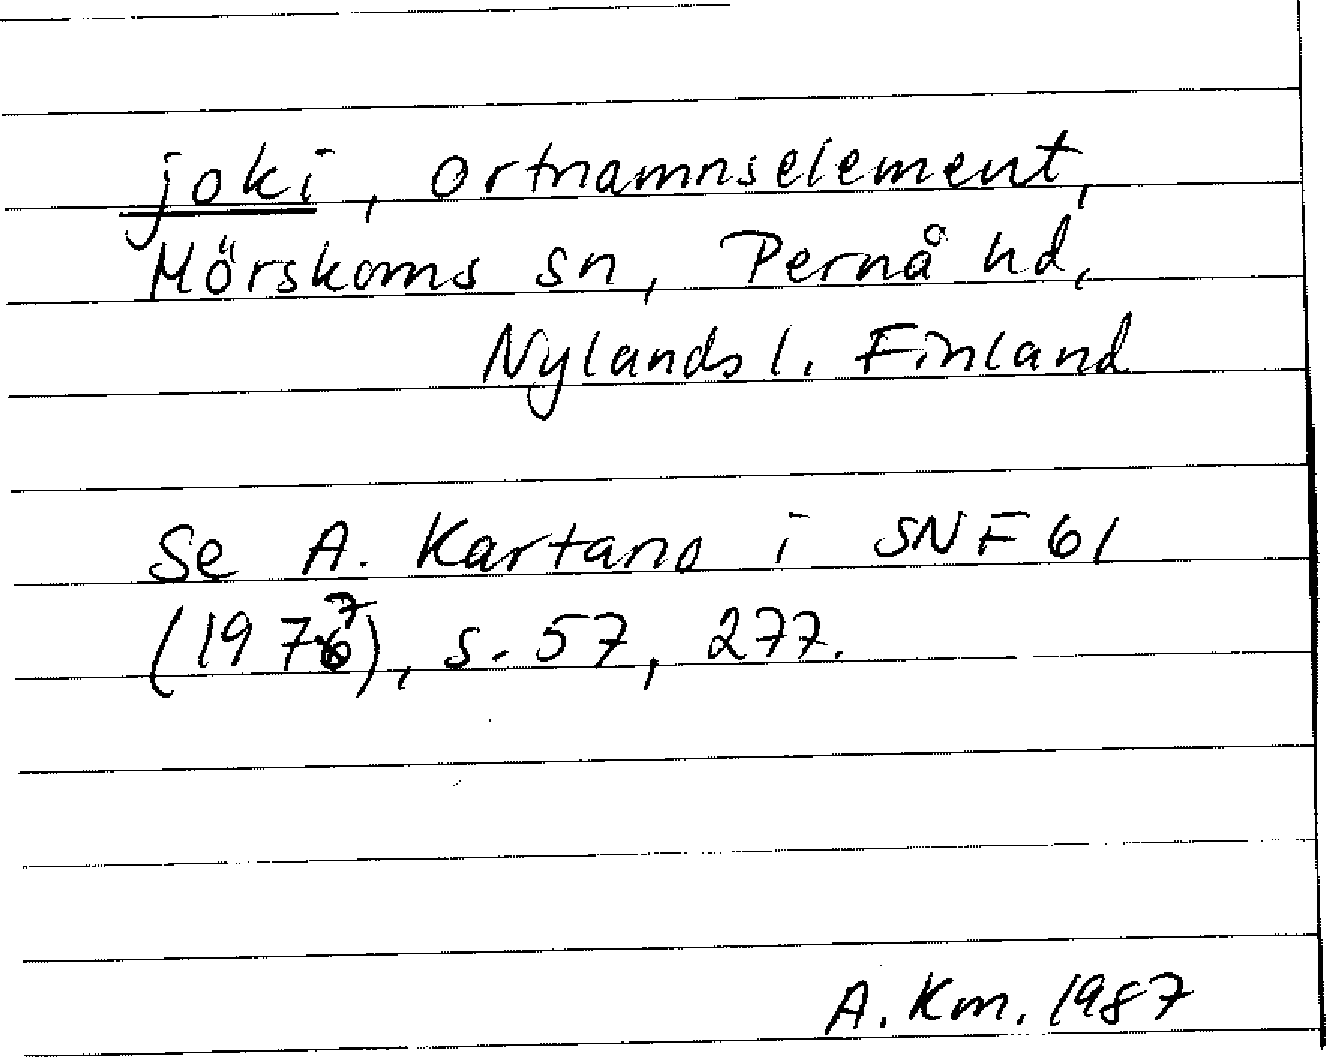 joki, ortnamnselement,
Mörskoms sn, Pernå hd,
Nylands l. Finland
Se A. Kartano i SNF 61
(1977), s. 57, 277.
A. Km. 1987